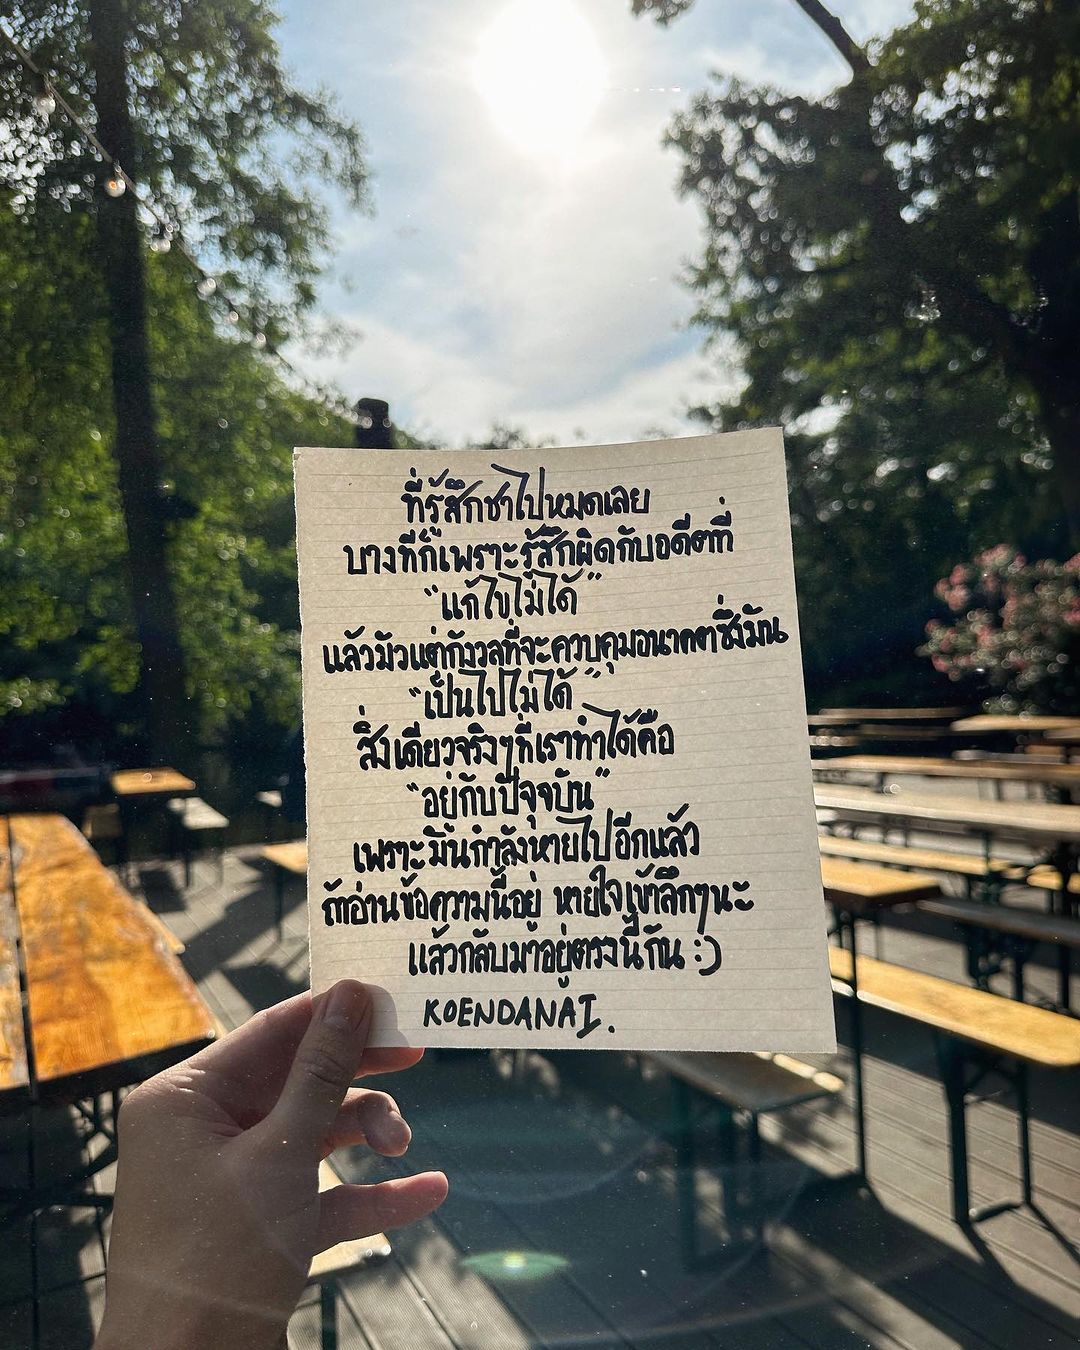 ที่รู้สึกชาไปหมดเลย
บางทีก็เพราะรู้สึกผิดกับอดีตที่
"แก้ไขไม่ได้"
แล้วมัวแต่กังวลที่จะควบคุมอนาคตซึ่งมัน
"เป็นไปไม่ได้"
สิ่งเดียวจริงๆที่เราทำได้คือ
"อยู่กับปัจจุบัน"
เพราะมันกำลังหายไปอีกแล้ว
ถ้าอ่านข้อความนี้อยู่ หายใจเข้าลึกๆนะ
แล้วกลับมาอยู่ตรงนี้กัน :)
KOENDANAI.